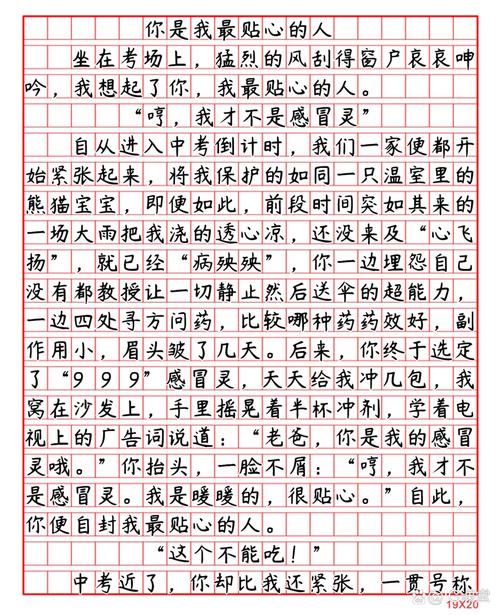 你是我最贴心的人
坐在考场上，猛烈的风刮得窗户哀哀呻
吟，我想起了你，我最贴心的人。
“哼，我才不是感冒灵”
自从进入中考倒计时，我们一家便都开
始紧张起来，将我保护的如同一只温室里的
熊猫宝宝，即使如此，前段时间突如其来的
一场大雨把我浇的透心凉，还没来及“心飞
扬”，就已经“病殃殃”，你一边埋怨自己
没有都教授让一切静止然后送伞的超能力，
一边四处寻方问药，比较哪种药药效好，副
作用小，眉头皱了几天。后来，你终于选定
了“999”感冒灵，天天给我冲几包，我
窝在沙发上，手里摇晃着半杯冲剂，学着电
视上的广告词说道：“老爸，你是我的感冒
灵哦。”你抬头，一脸不屑：“哼，我才不
是感冒灵。我是暖暖的，很贴心。”自此，
你便自封我最贴心的人。
“这个不能吃！”
中考近了，你却比我还紧张，一贯号称
19X20